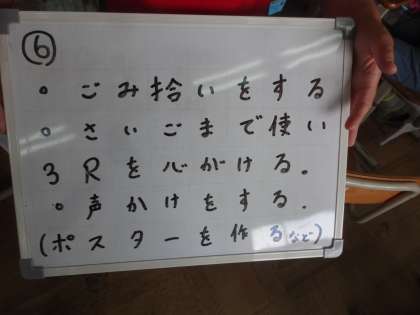 ⑥
・ごみ拾いをする
・さいごまで使い
3Rを心がける。
・声かけをする.
(ポスターを作るなど)